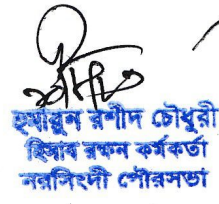 হুমায়ুন রশীদ চৌধুরী
হিসাব রক্ষন কর্মকর্তা
নরসিংদী পৌরসভা